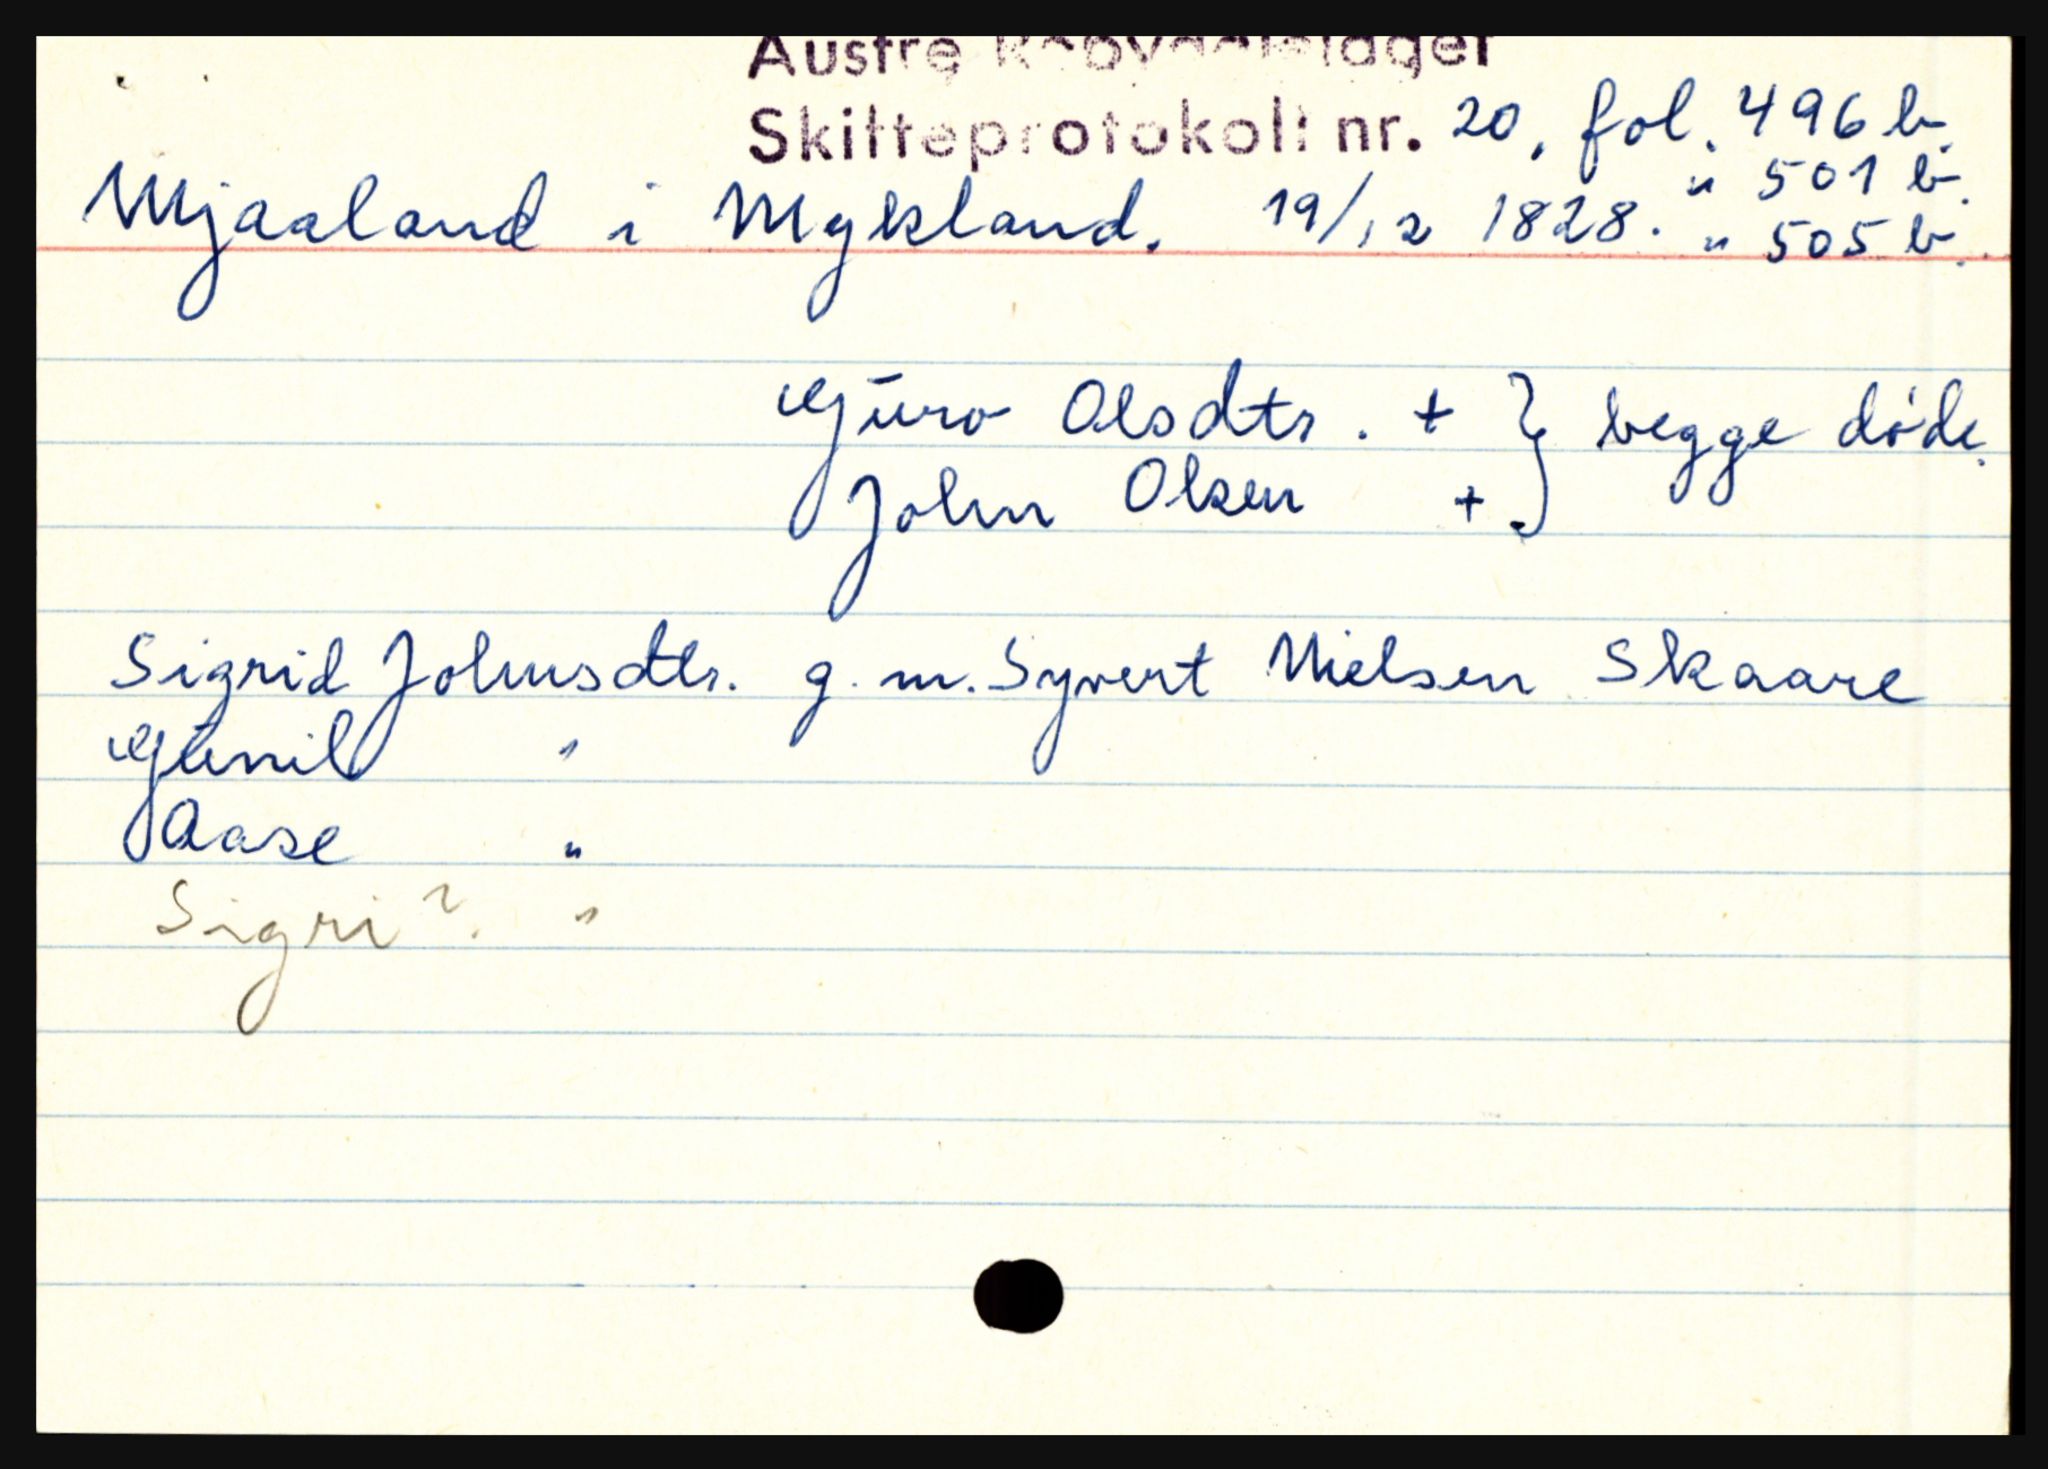 Austre Robyggjelager
Skifteprotokoll nr. 20, fol. 496 b.
" 501 b.
Mjaaland i Mykland. 19/12 1828. " 505 b.
Guro Olsdtr. + } begge døde.
John Olsen +
Sigrid Johnsdtr. g. m. Syvert Nielsen Skaare
Gunil "
Aase "
Sigri? "